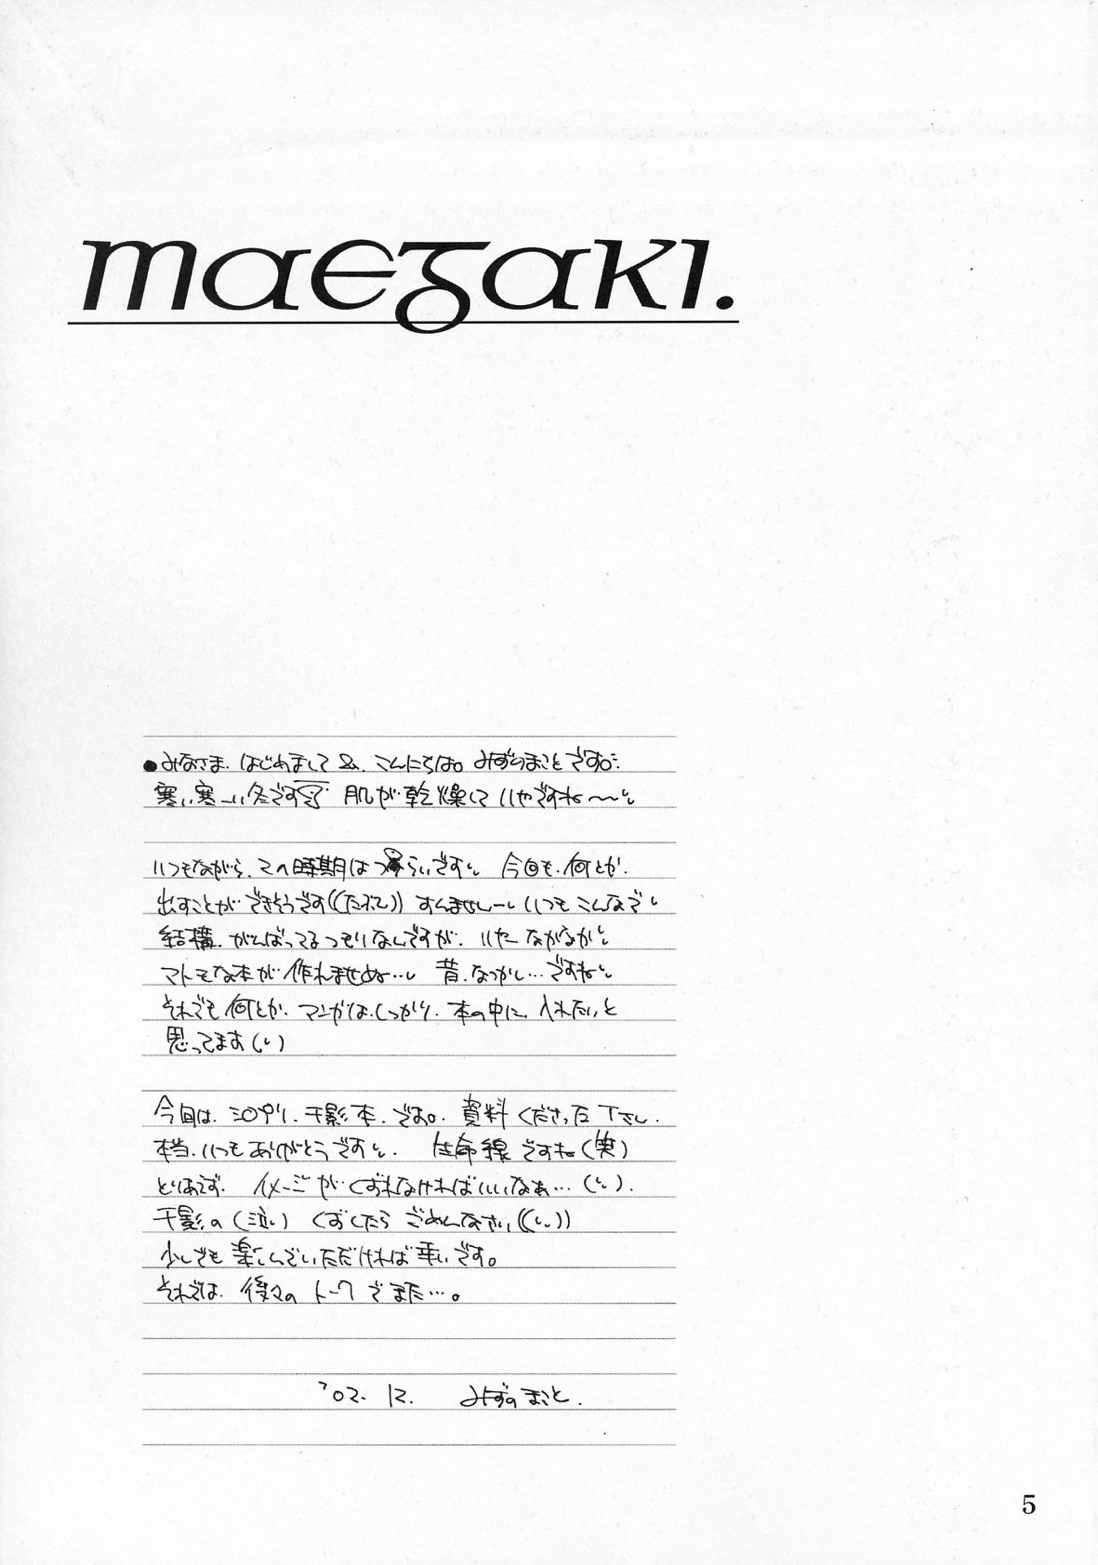 maegaki.
●みなさま、はじめまして&、こんにちは。みずのまことです。
寒い寒ーい冬です 肌が乾燥していやですね〜〜
いつもながら、この時期はつらいです 今回も、何とか、
出すことができそうです すんませんー いつもこんなで
結構、がんばってるつもりなんですが、いやーなかなか
マトモな本が作れませぬ… 昔、なつかし…ですね
それでも何とか、マンガは、しっかり、本の中に、入れたいと
思ってます
今回は、シスプリ、千影本、です。資料くださった下さし、
本当、いつもありがとうです 生命線ですね(笑)
とりあえず、イメージが、くずれなければいいなぁ…
千影の(泣) くずしたらごめんなさい
少しでも楽しんでいただければ幸いです。
それでは、後々のトークでまた…。
'02.12. みずのまこと.
5